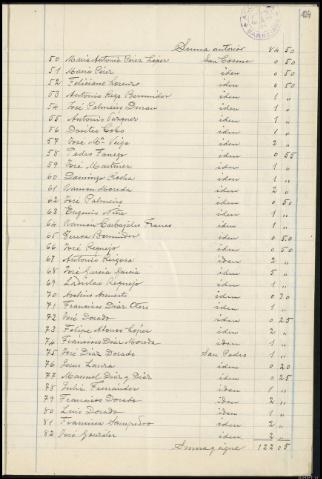 Suma anterior 84 50
50 María Antonia Pérez López San Cosme 0 50
51 María Pérez idem 0 50
52 Feliciano Lorenzo idem 0 50
53 Antonio Rey Bermúdez idem 1 "
54 José Palmeiro Durán idem 1 "
55 Antonio Vázquez idem 1 "
56 Benito Cobo idem 1 "
57 José Mª Veiga idem 2 "
58 Pedro idem 0 55
59 José Martínez idem 1 "
60 Domingo Rocha idem 1 "
61 Ramón idem 2 "
62 José Palmeiro idem 0 50
63 Eugenio idem 1 "
64 Ramón Carbajales idem 1 "
65 Bermúdez idem 0 50
66 José Requejo idem 0 50
67 Antonio idem 2 "
68 José García García idem 5 "
69 Ladislao Requejo idem 1 "
70 idem 0 20
71 Francisco Díaz idem 1 "
72 José Dorado idem 0 25
73 Felipe Alonso López idem 2 "
74 Francisco Díaz idem 1 "
75 José Díaz Dorado San Pedro 1 "
76 idem 0 20
77 Manuel Díaz y Díaz idem 0 25
78 Julia Fernández idem 1 "
79 Francisco Dorado idem 2 "
80 Luis Dorado idem 1 "
81 Francisco Sampedro idem 2 "
82 José González idem 2 "
Suma y sigue 122 05